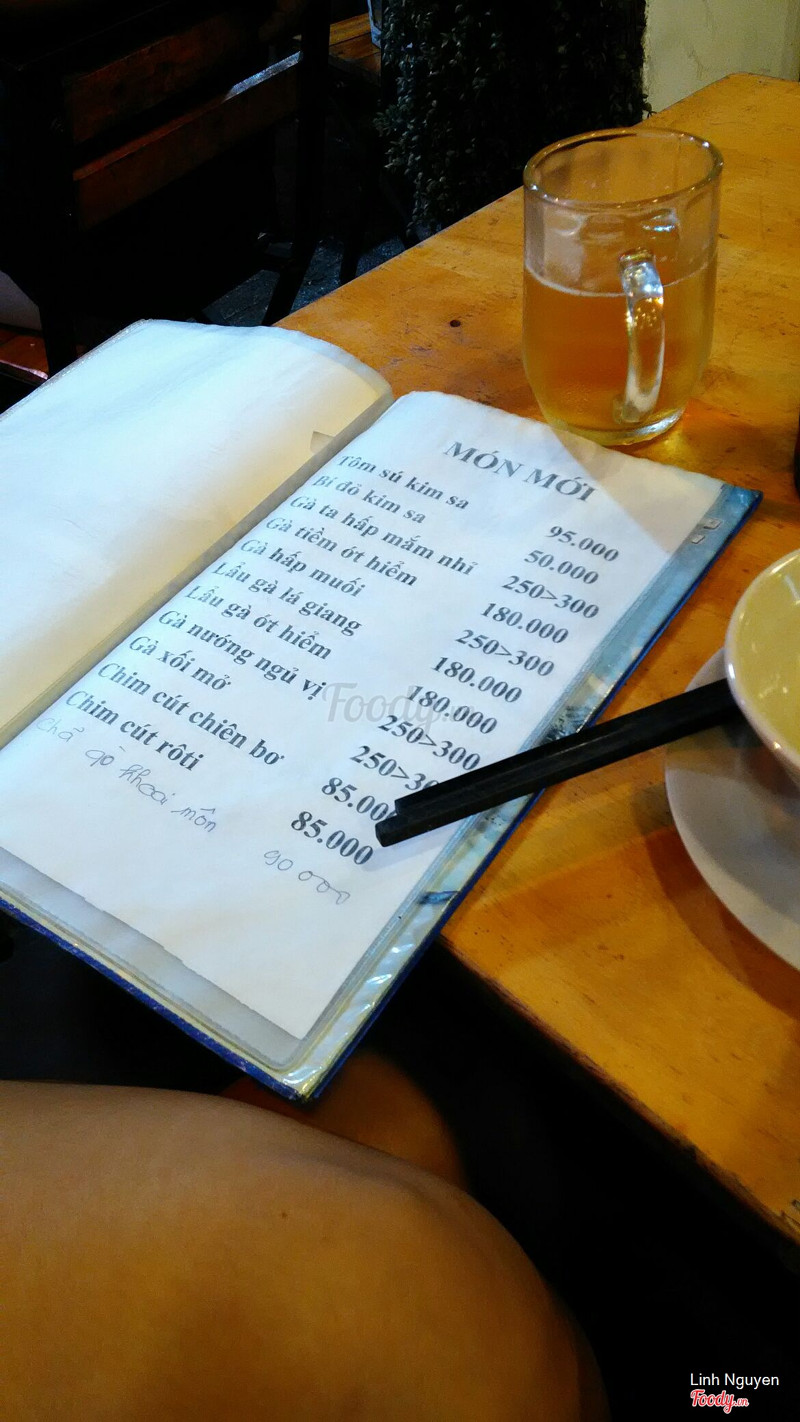 MÓN MỚI
Tôm sú kim sa 95.000
Bí đỏ kim sa 50.000
Gà ta hấp mắm nhĩ 250>300
Gà tiềm ớt hiểm 180.000
Gà hấp muối 250>300
Lẩu gà lá giang 180.000
Lẩu gà ớt hiểm 180.000
Gà nướng ngủ vị 250>300
Gà xối mở 250>30
Chim cút chiên bơ 85.000
Chim cút rôti 85.000
Chả gò khoai môn 90 000
Foody.vn
Linh Nguyen
Foody.vn